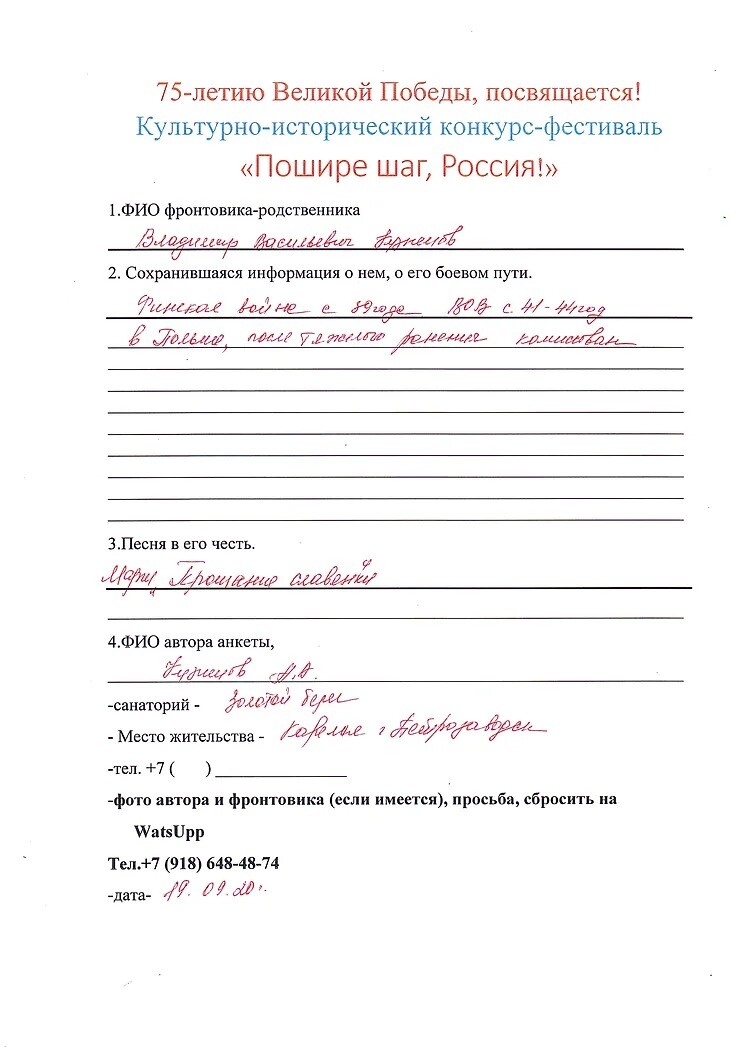 75-летию Великой Победы, посвящается!
Культурно-исторический конкурс-фестиваль
«Пошире шаг, Россия!»
1.ФИО фронтовика-родственника
Владимир Васильевич Кузнецов
2. Сохранившаяся информация о нем, о его боевом пути.
Финская война с 39 года ВОВ с 41-44 год
в Польше, после тяжелого ранения комиссован
3.Песня в его честь.
Марш "Прощание славянки"
4.ФИО автора анкеты,
Кузнецов А.А.
-санаторий - Золотой берег
- Место жительства - Карелия г Петрозаводск
-тел. +7 ( ) _______________
-фото автора и фронтовика (если имеется), просьба, сбросить на
WatsUpp
Тел.+7 (918) 648-48-74
-дата- 19.09.20г.